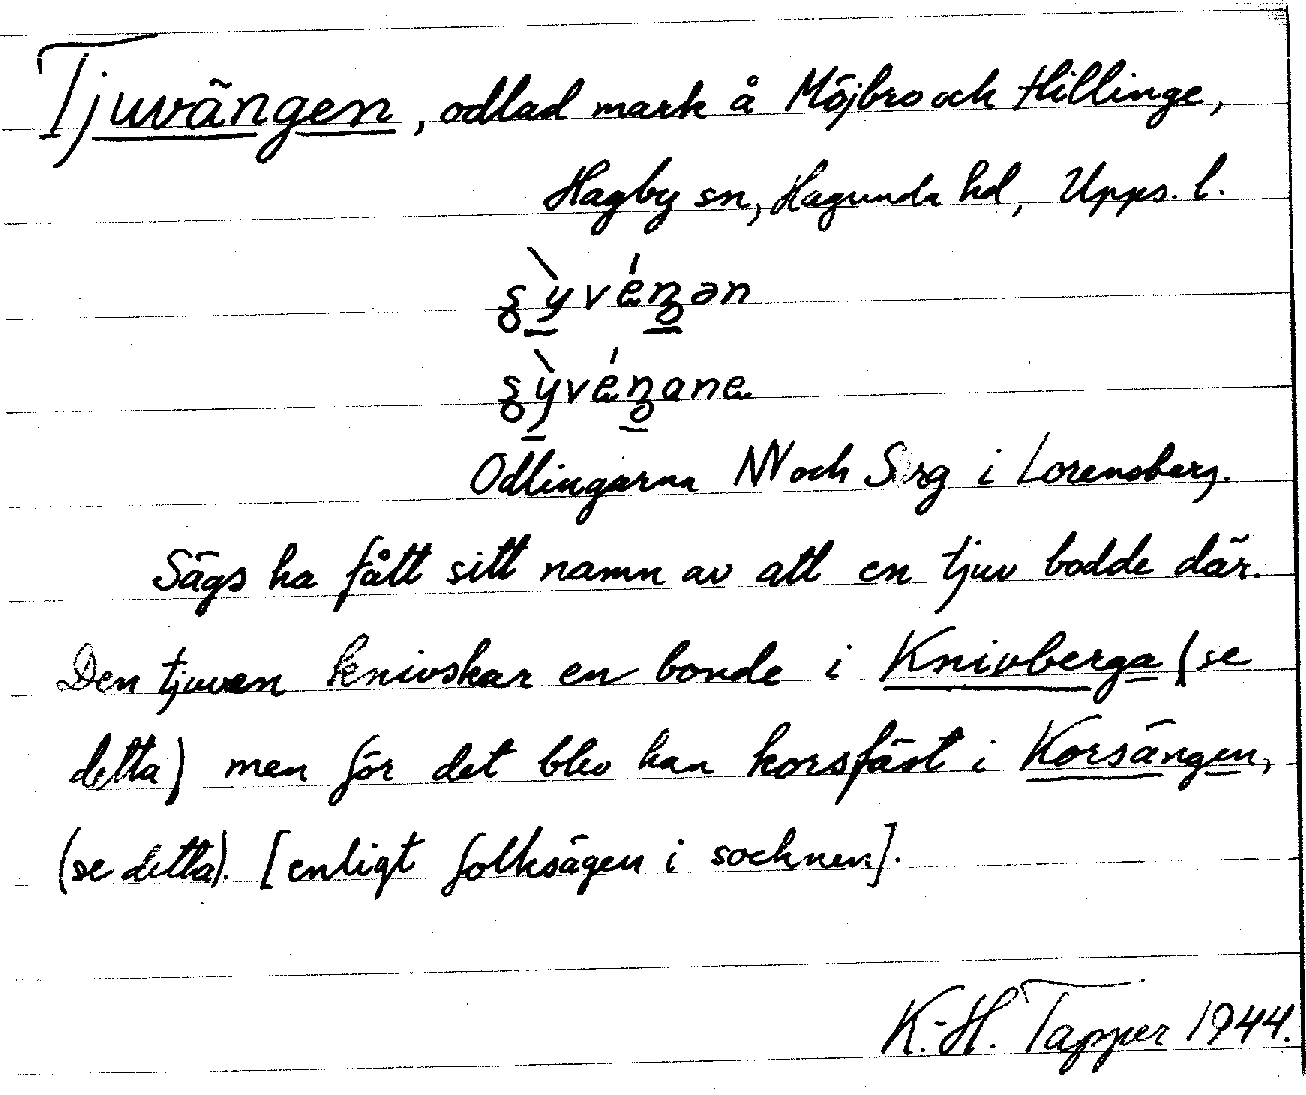 Tjuvängen, odlad mark å Möjbro och Hillinge,
Hagby sn, Hagunda hd, Upps. l.
Odlingarna NV och S i Lorensberg.
Sägs ha fått sitt namn av att en tjuv bodde där.
Den tjuven knivskar en bonde i Knivberga (se
detta) men för det blev han korsfäst i Korsängen,
(se detta). [enligt folksägen i socknen].
K.-H. Tapper 1944.